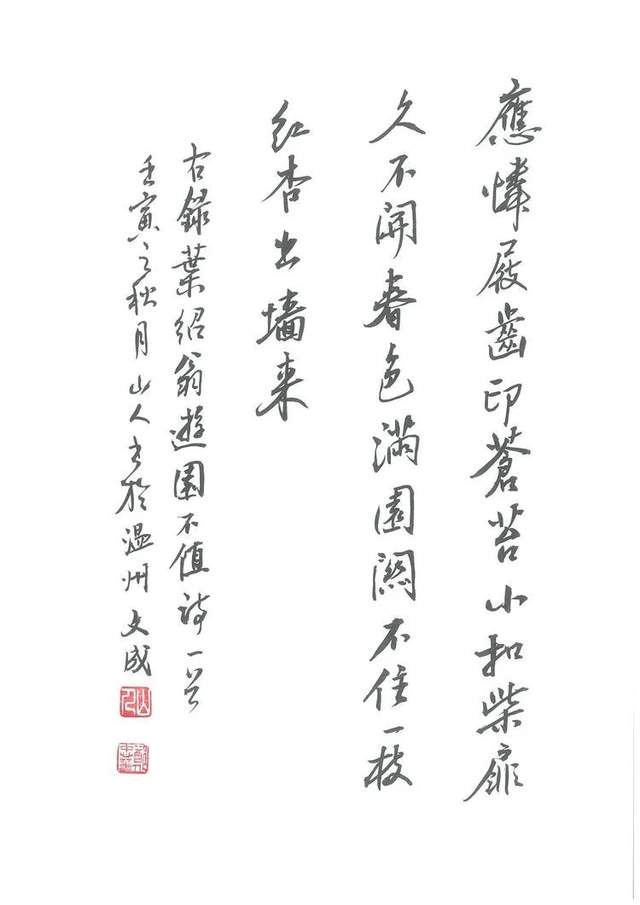 應憐屐齒印蒼苔小扣柴扉
久不開春色滿園關不住一枝
紅杏出墻来
右録葉紹翁遊園不值詩一首
壬寅之秋月山人書於溫州文成
山人